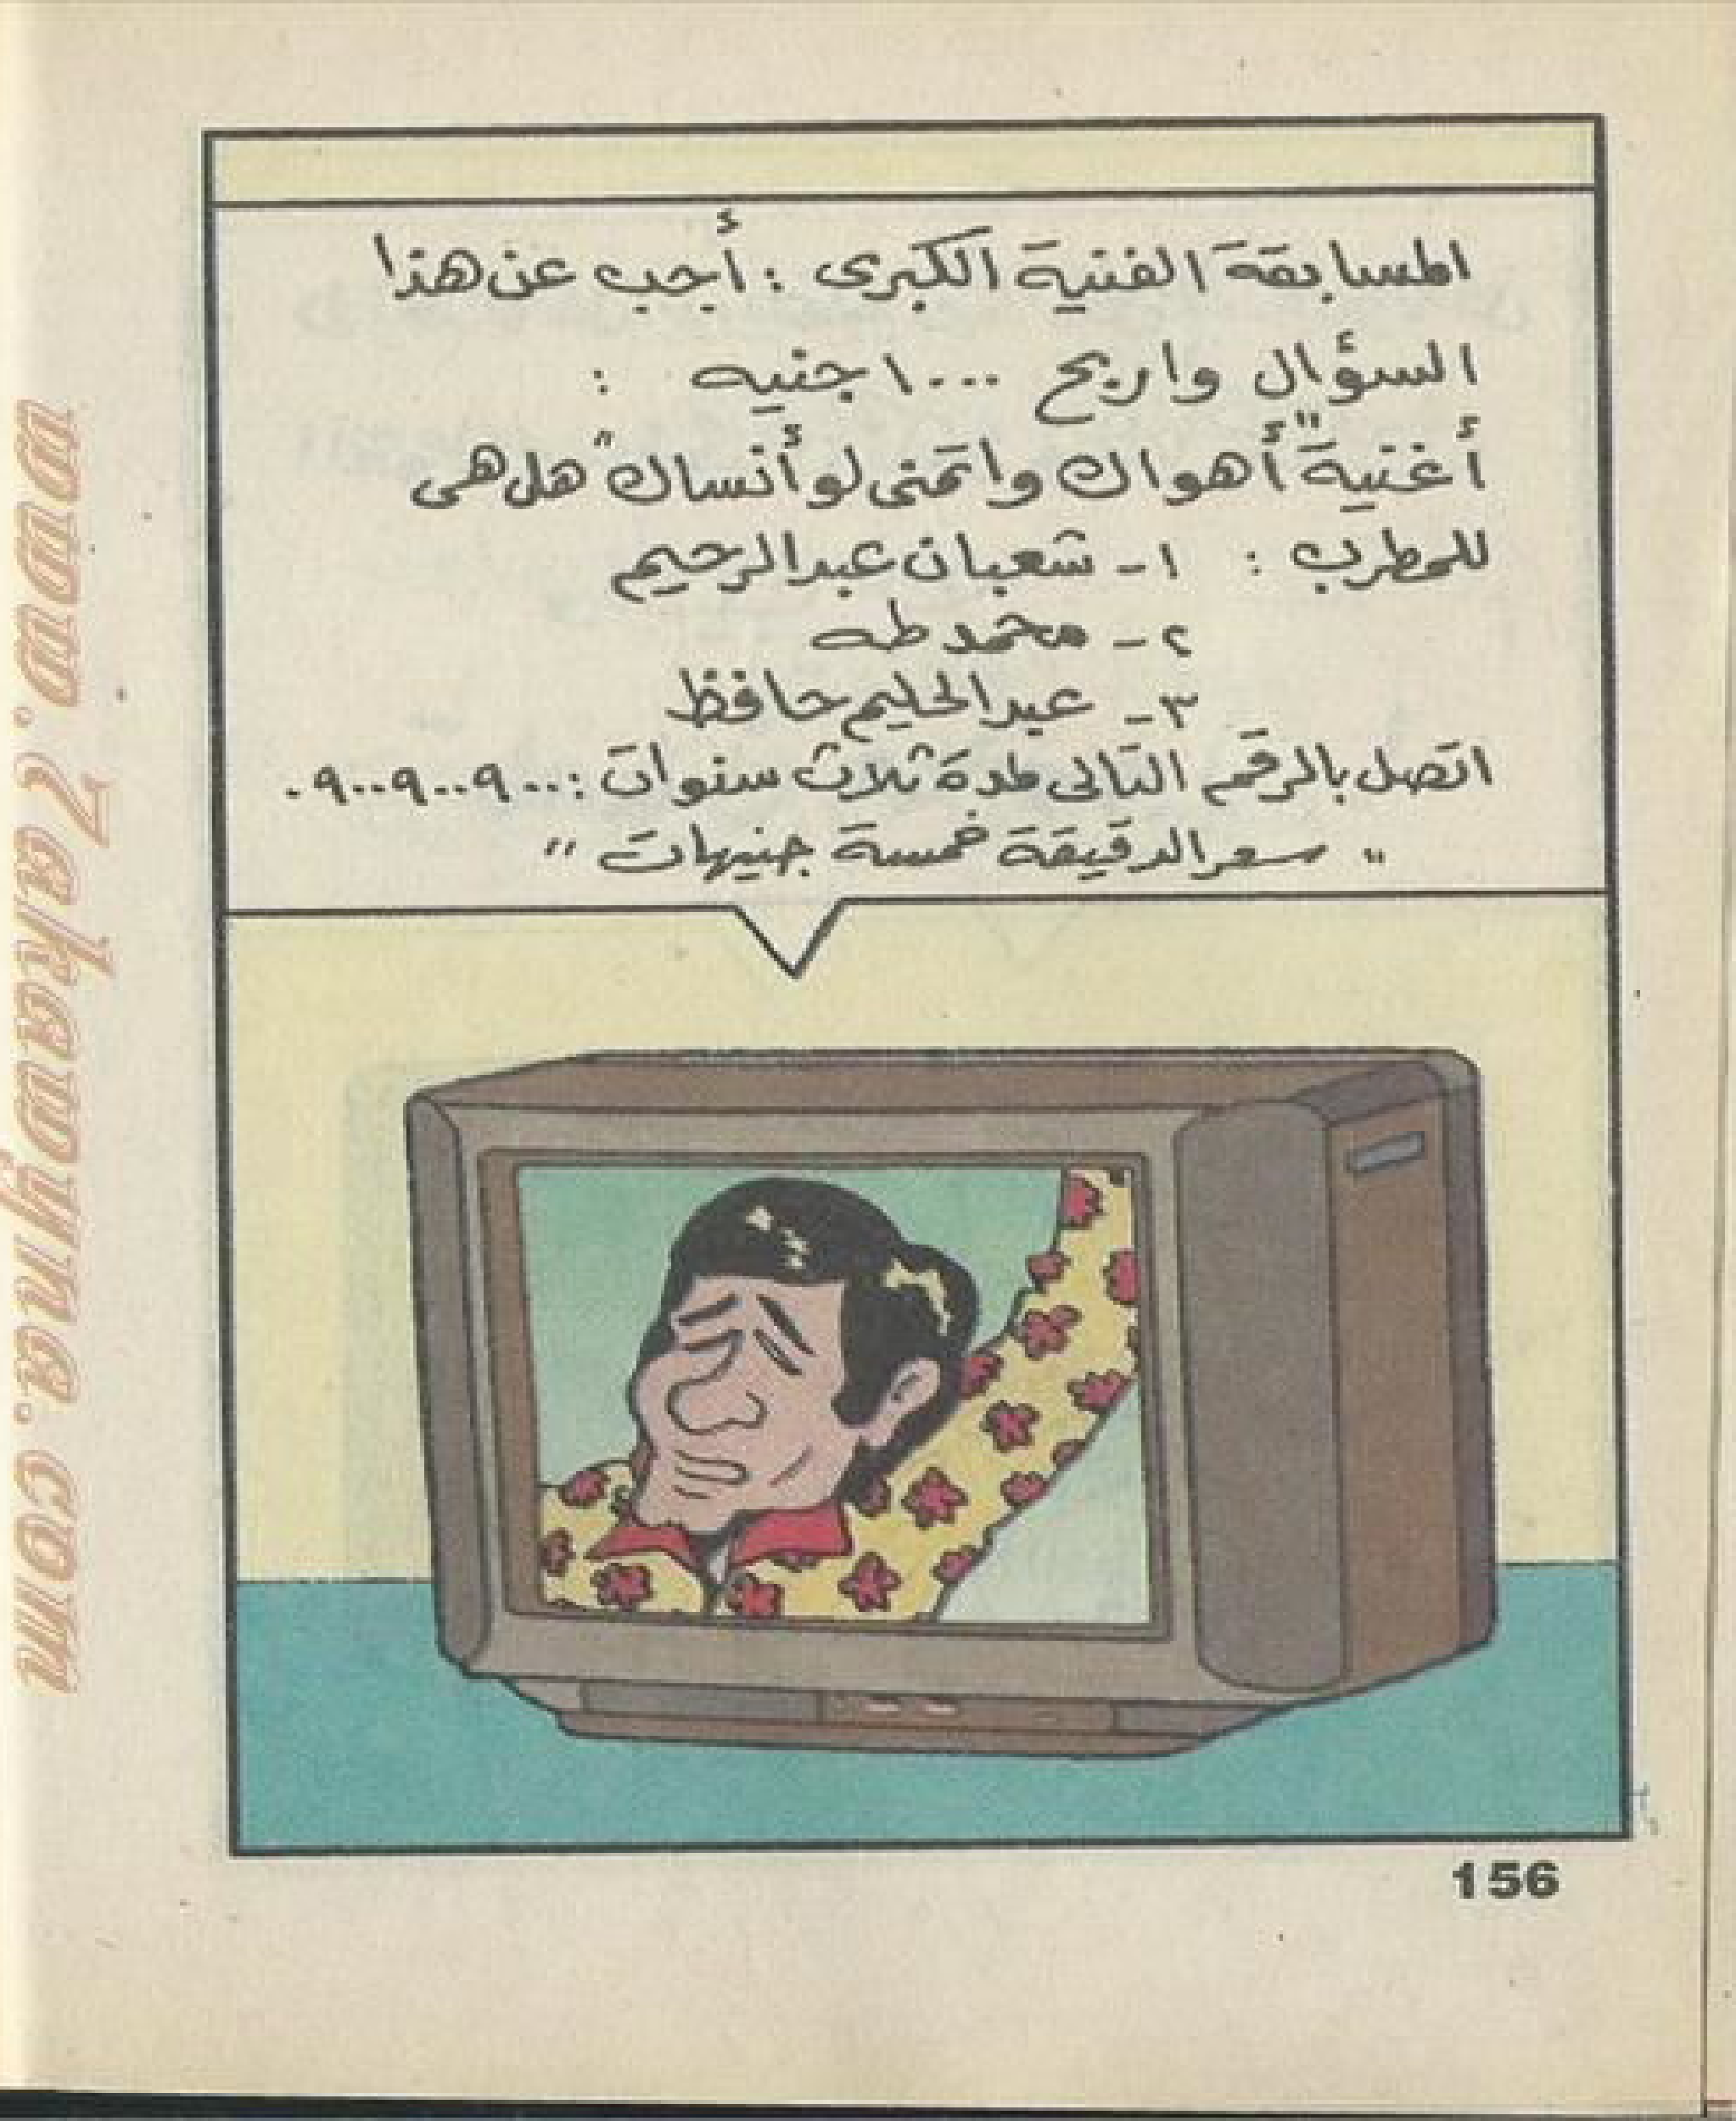 المسابقة الفنية الكبرى : أجب عن هذا
السؤال واربح ١٠٠٠ جنيه :
أغنية "أهواك واتمنى لو أنساك" هل هى
للمطرب : ١- شعبان عبد الرحيم
٢- محمد طه
٣- عبد الحليم حافظ
اتصل بالرقم التالى لمدة ثلاث سنوات : ٠٩٠٠٩٠٠٩٠٠
" سعر الدقيقة خمسة جنيهات "
156
www.7akawyna.com